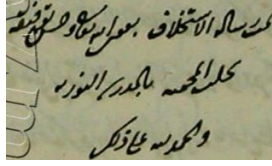 تمت رسالة الاستخلاف بعون الله تعالى وحسن توفيقه
بحلب المحمية بالمدرسة النورية
والحمد لله على ذلك